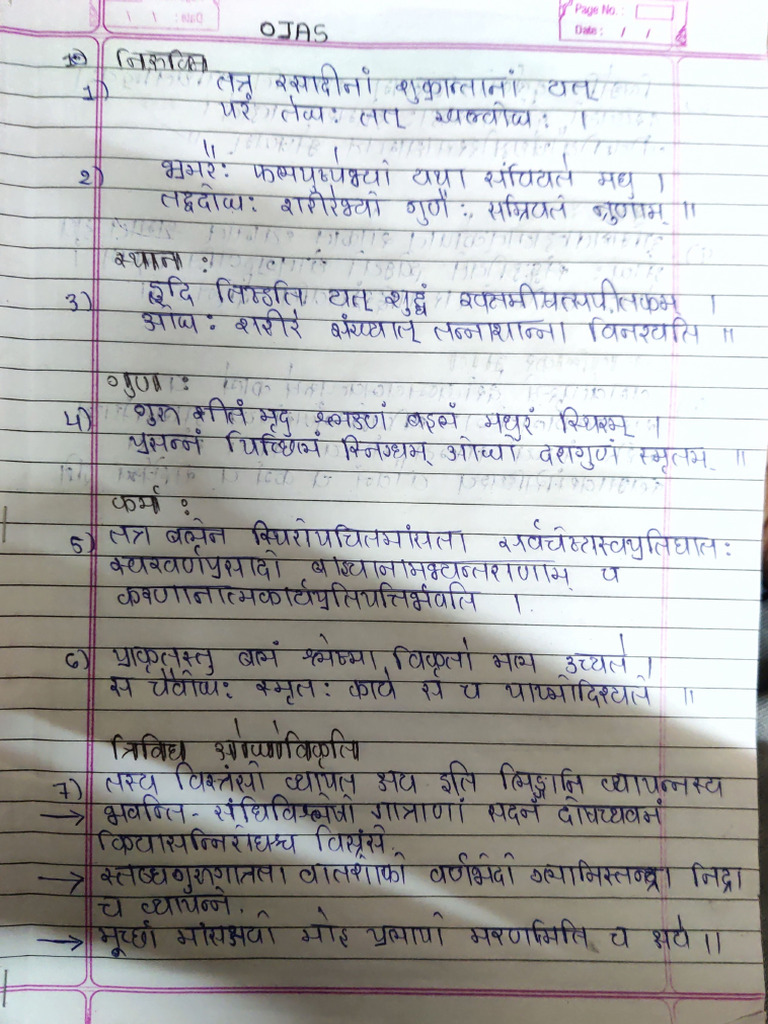 Page No.:
Date: / /
OJAS
निरुक्ति
1) तत्र रसादीनां शुक्रान्तानां यत्
परं तेजः तत् खल्वोजः ।
2) भ्रमरैः फलपुष्पेभ्यो यथा संचियते मधु ।
तद्वदोजः शरीरेभ्यो गुणैः संभ्रियते नृणाम् ॥
स्थान :
3) हृदि तिष्ठति यत् शुद्धं रक्तमीषत्सपीतकम् ।
ओजः शरीरे संख्यात् तन्नाशान्ना विनश्यति ॥
गुण :
4) गुरु शीतं मृदु श्लक्ष्णं बहलं मधुरं स्थिरम् ।
प्रसन्नं पिच्छिलं स्निग्धम् ओजो दशगुणं स्मृतम् ॥
कर्म :
5) तत्र बलेन स्थिरोपचितमांसता सर्वचेष्टास्वप्रतिघातः
स्वरवर्णप्रसादो बाह्यानामभ्यन्तराणाम् च
करणानात्मकार्यप्रतिपत्तिर्भवति ।
6) प्राकृतस्तु बलं श्लेष्मा विकृतो मल उच्यते ।
स चैवौजः स्मृतः काये स च पाप्मोदिश्यते ॥
त्रिविध ओजोविकृति
7) तस्य विस्त्रंसो व्यापत् क्षय इति लिङ्गानि व्यापन्नस्य
→ भवन्ति - संधिविश्लेषो गात्राणां सदनं दोषच्यवनं
क्रियासन्निरोधश्च विस्रंसे.
→ स्तब्धगुरुगात्रता वातशोफो वर्णभेदो ग्लानिस्तन्द्रा निद्रा
च व्यापन्ने.
→ मूर्च्छा मांसक्षयो मोह प्रलापो मरणमिति च क्षये ॥